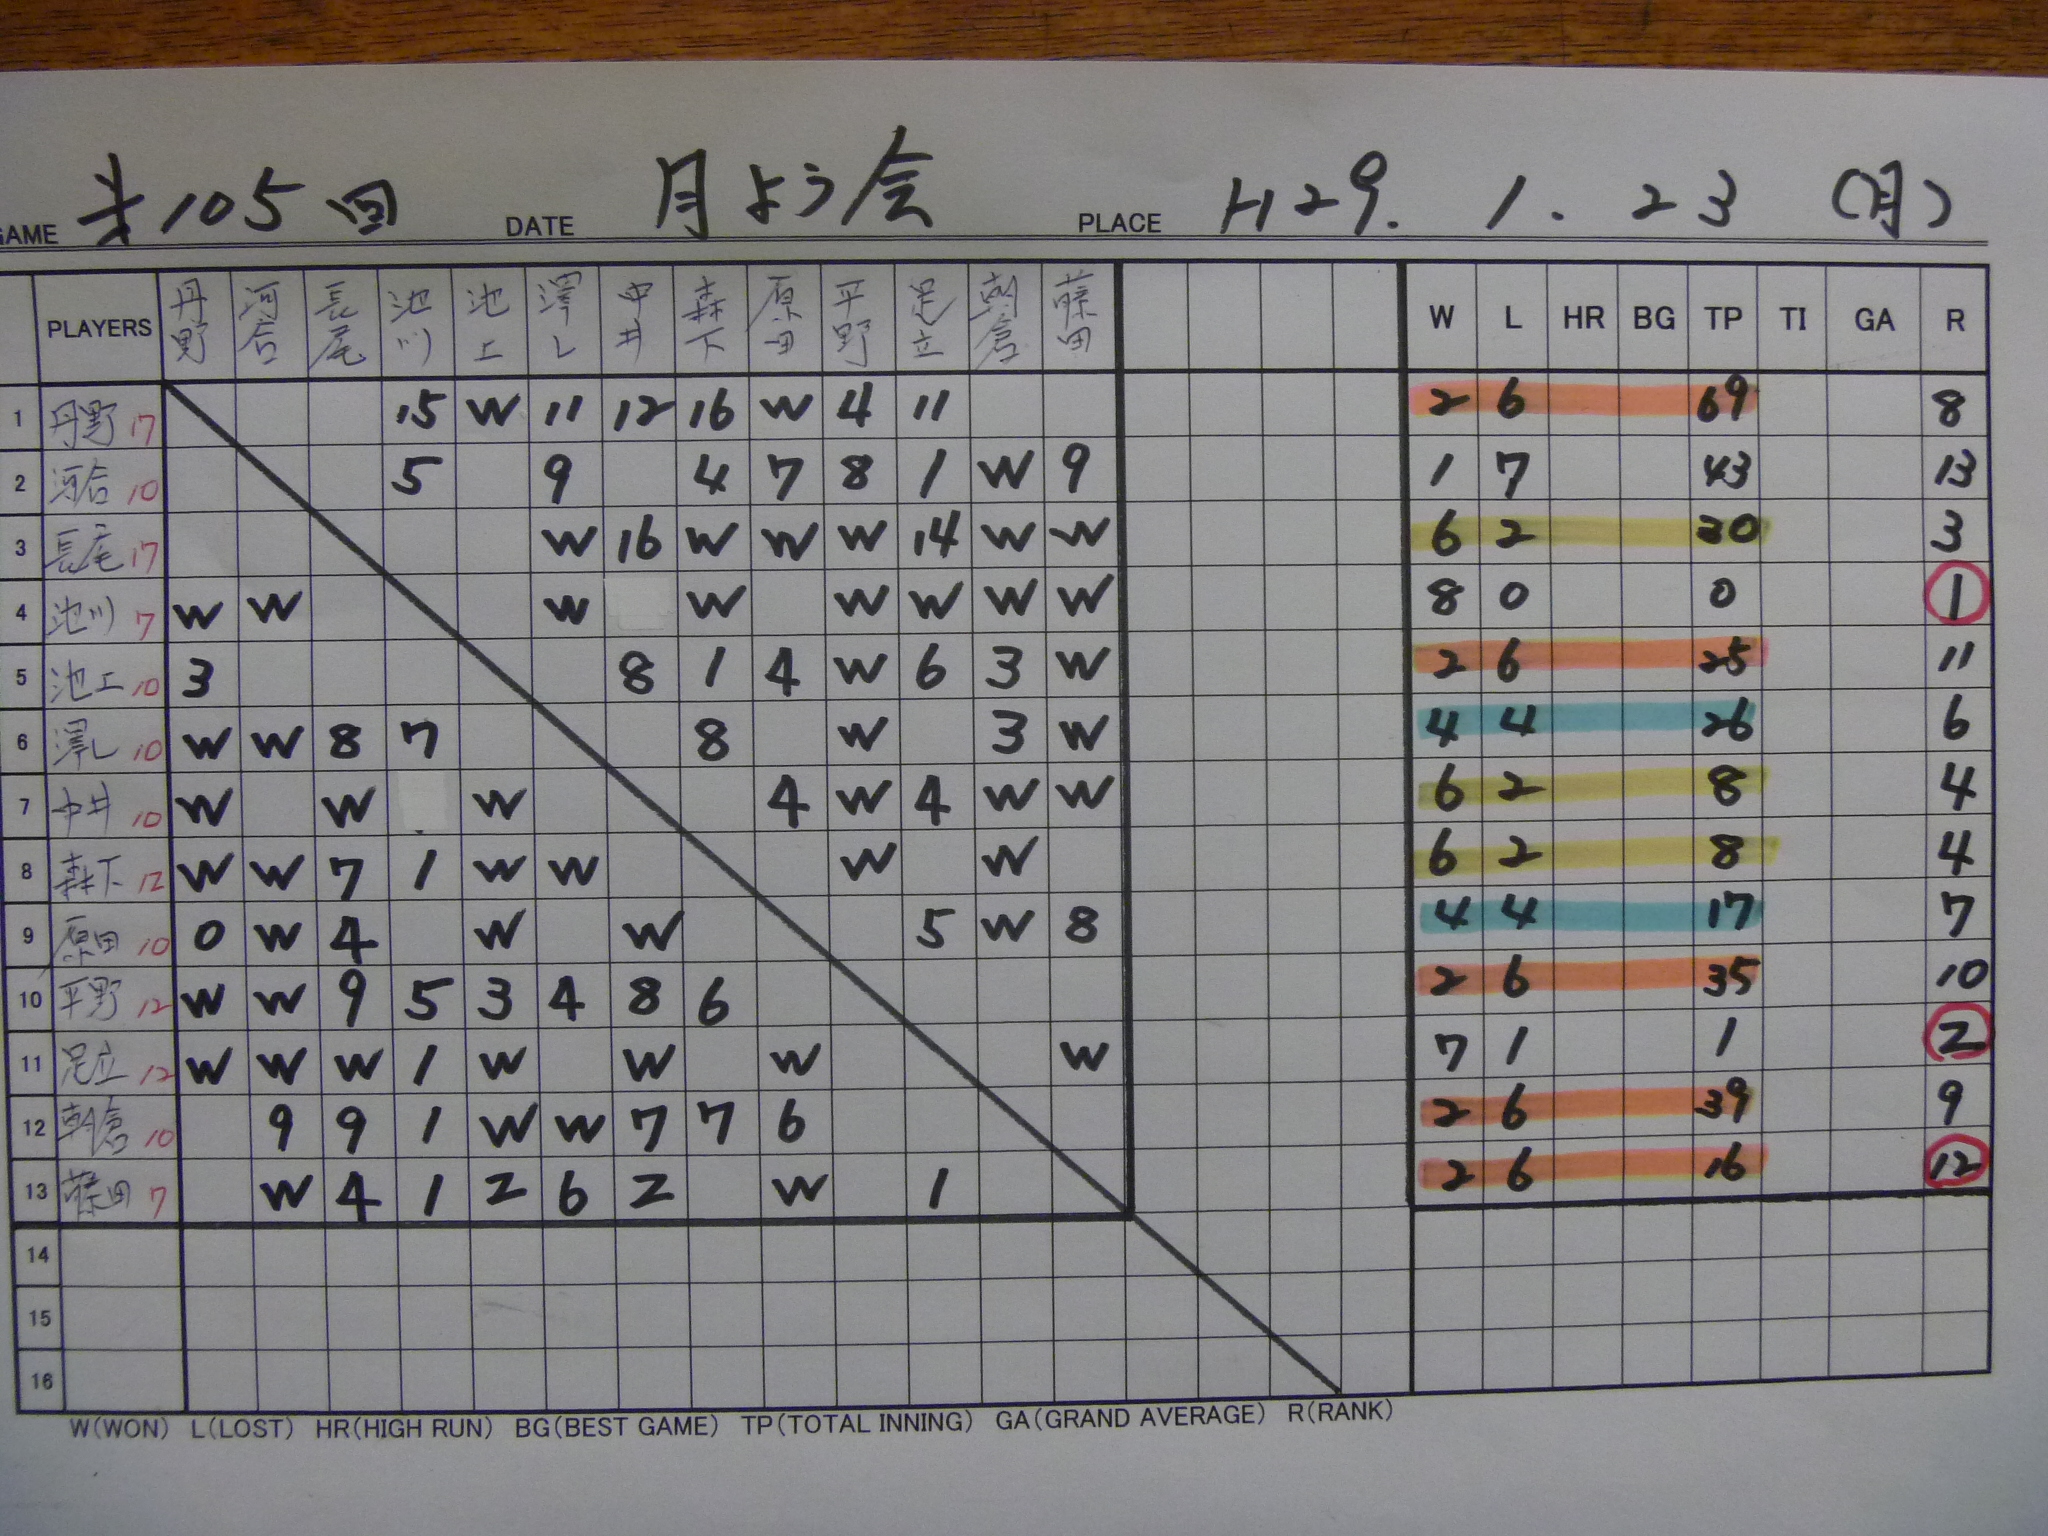 GAME 第105回 DATE 月よう会 PLACE H29. 1. 23 (月)
PLAYERS 丹野 河合 長尾 池川 池上 澤し 中井 森下 原田 平野 足立 朝倉 藤田 W L HR BG TP TI GA R
1 丹野 17 15 W 11 12 16 W 4 11 2 6 69 8
2 河合 10 5 9 4 7 8 1 W 9 1 7 43 13
3 長尾 17 W 16 W W W 14 W W 6 2 30 3
4 池川 7 W W W W W W W W 8 0 0 1
5 池上 10 3 8 1 4 W 6 3 W 2 6 25 11
6 澤し 10 W W 8 7 8 W 3 W 4 4 26 6
7 中井 10 W W W 4 W 4 W W 6 2 8 4
8 森下 12 W W 7 1 W W W W 6 2 8 4
9 原田 10 0 W 4 W W 5 W 8 4 4 17 7
10 平野 12 W W 9 5 3 4 8 6 2 6 35 10
11 足立 12 W W W 1 W W W W 7 1 1 2
12 朝倉 10 9 9 1 W W 7 7 6 2 6 39 9
13 藤田 7 W 4 1 2 6 2 W 1 2 6 16 12
14
15
16
W(WON) L(LOST) HR(HIGH RUN) BG(BEST GAME) TP(TOTAL INNING) GA(GRAND AVERAGE) R(RANK)